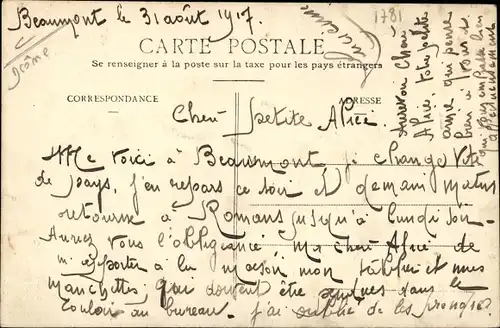 Beaumont le 31 août 1917.
1781
Drôme
CARTE POSTALE
Se renseigner à la poste sur la taxe pour les pays étrangers
CORRESPONDANCE
ADRESSE
Cher petite Alice.
Me voici à Beaumont, je change vite
de pays, j'en repars ce soir et demain matin
retourne à Romans jusqu'à lundi soir.
Auriez vous l'obligeance, ma cher Alice de
m'apporter à la maison mon tablier et mes
manchettes, qui doivent être dans le
couloir au bureau. j'ai oublié de les prendre
Aurevoir Cher
Alice, votre petite
amie qui pense
bien à vous et
qui vous embrasse bien
affectueusement